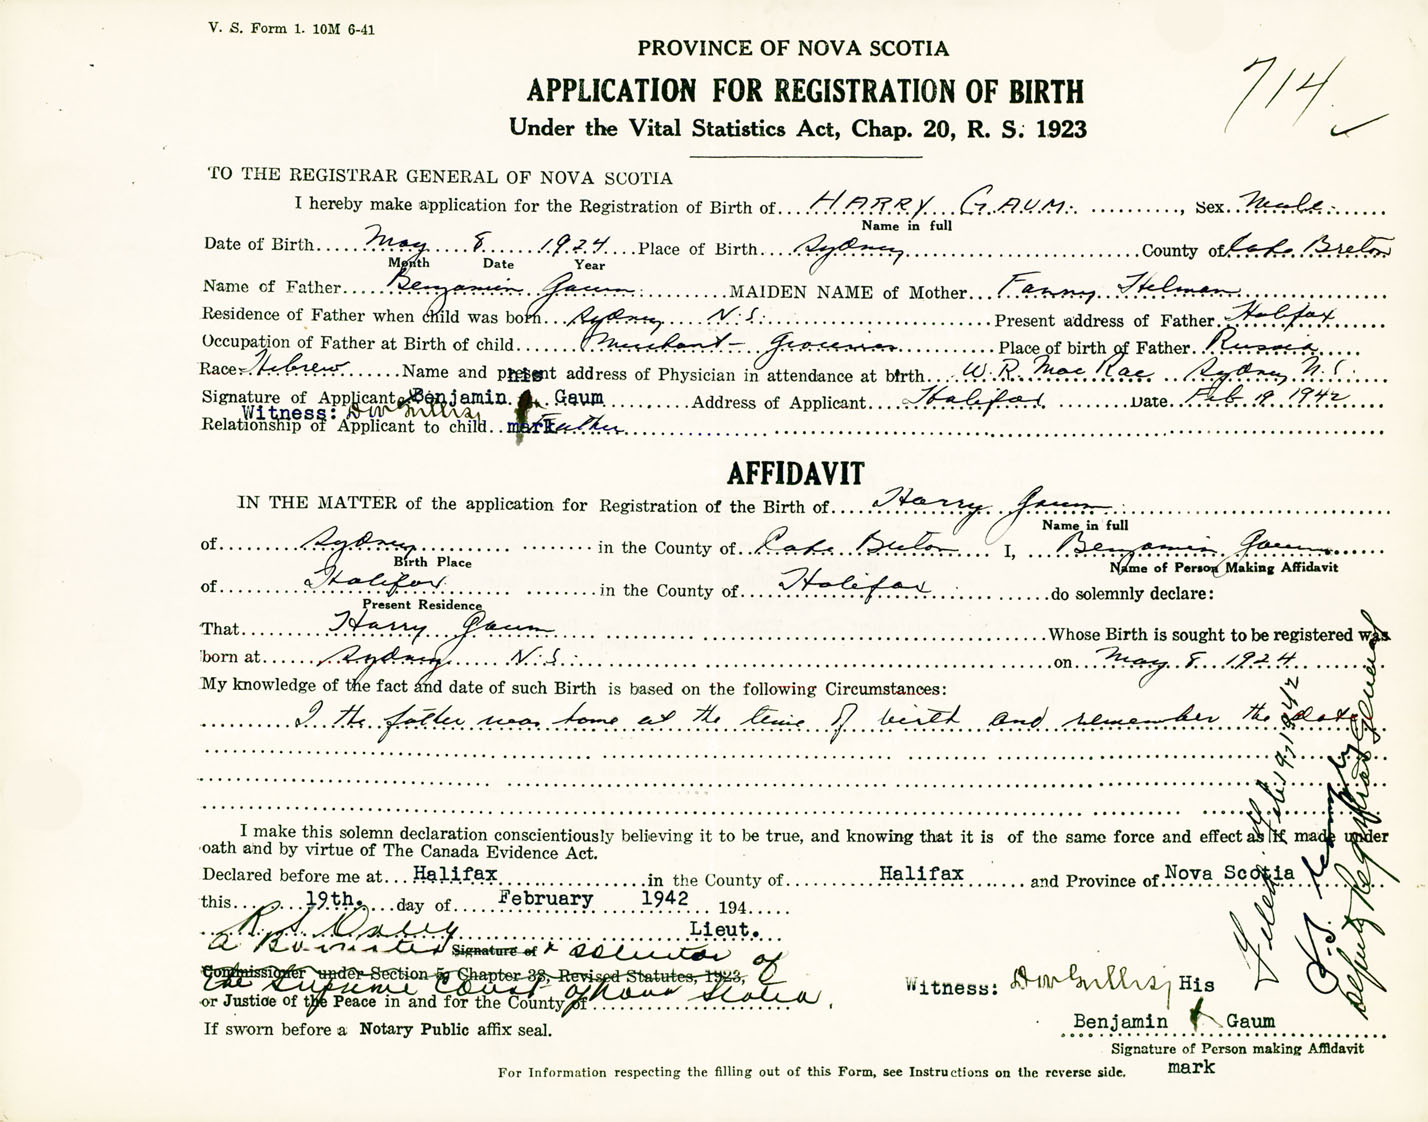 V. S. Form 1. 10M 6-41
PROVINCE OF NOVA SCOTIA
APPLICATION FOR REGISTRATION OF BIRTH
714
Under the Vital Statistics Act, Chap. 20, R. S. 1923
TO THE REGISTRAR GENERAL OF NOVA SCOTIA
I hereby make application for the Registration of Birth of HARRY GAUM. , Sex Male.
Name in full
Date of Birth May 8 1924 Place of Birth Sydney County of Cape Breton
Month Date Year
Name of Father Benjamin Gaum MAIDEN NAME of Mother Fanny Helman
Residence of Father when child was born Sydney N.S. Present address of Father Halifax
Occupation of Father at Birth of child Merchant - Groceries Place of birth of Father Russia
Race Hebrew Name and present address of Physician in attendance at birth W. R. MacRae Sydney N.S.
his
Signature of Applicant Benjamin Gaum Address of Applicant Halifax Date Feb 19 1942
Witness: D W Gillis
Relationship of Applicant to child mark Father
AFFIDAVIT
IN THE MATTER of the application for Registration of the Birth of Harry Gaum
Name in full
of Sydney in the County of Cape Breton I, Benjamin Gaum
Birth Place Name of Person Making Affidavit
of Halifax in the County of Halifax do solemnly declare:
Present Residence
That Harry Gaum Whose Birth is sought to be registered was
born at Sydney N.S. on May 8 1924
My knowledge of the fact and date of such Birth is based on the following Circumstances:
I the father was home at the time of birth and remember the date
I make this solemn declaration conscientiously believing it to be true, and knowing that it is of the same force and effect as if made under
oath and by virtue of The Canada Evidence Act.
Declared before me at Halifax in the County of Halifax and Province of Nova Scotia
this 19th. day of February 1942 194
Lieut.
a Barrister Signature of & solicitor of
Commissioner under Section 5, Chapter 38, Revised Statutes, 1923,
the Supreme Court of Nova Scotia.
or Justice of the Peace in and for the County of
If sworn before a Notary Public affix seal.
Witness: D W Gillis His
Benjamin Gaum
Signature of Person making Affidavit
mark
For Information respecting the filling out of this Form, see Instructions on the reverse side.
Filed Feb. 19, 1942
Deputy Registrar General